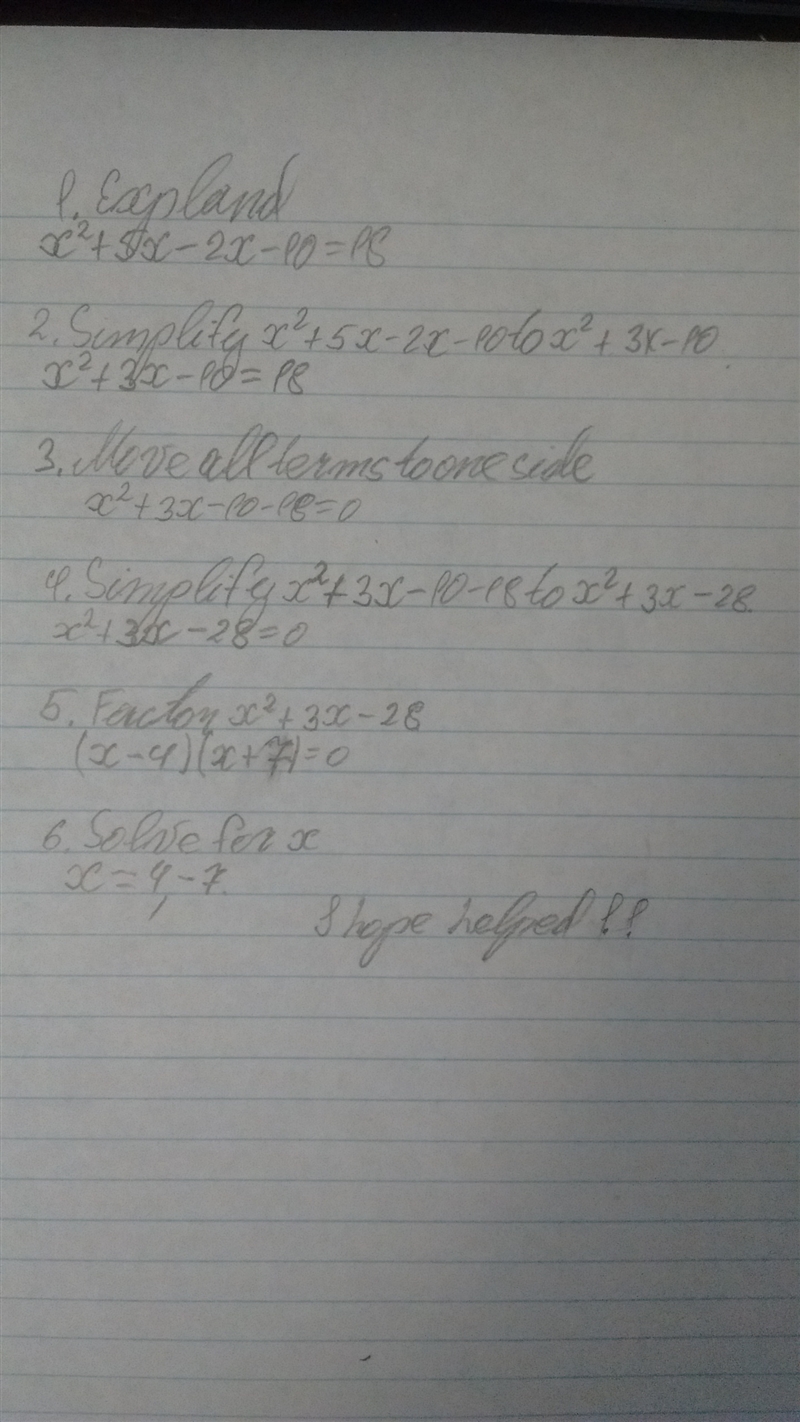 1. Expland
x²+5x-2x-10=18
2. Simplify x²+5x-2x-10 to x²+3x-10.
x²+3x-10=18
3. Move all terms to one side
x²+3x-10-18=0
4. Simplify x²+3x-10-18 to x²+3x-28.
x²+3x-28=0
5. Factor x²+3x-28
(x-4)(x+7)=0
6. Solve for x
x=4,-7.
I hope helped !!